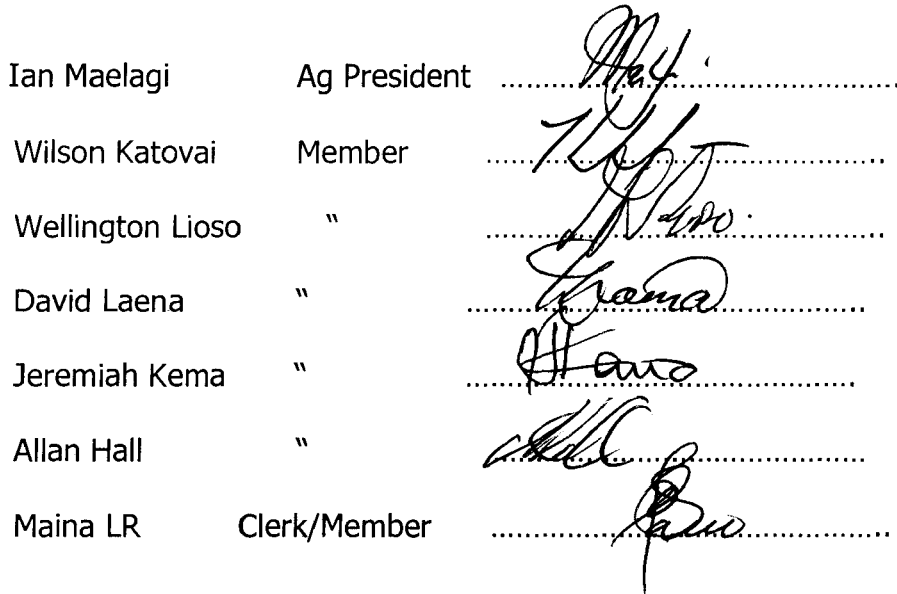 Ian Maelagi Ag President ..................................................
Wilson Katovai Member ..................................................
Wellington Lioso " ..................................................
David Laena " ..................................................
Jeremiah Kema " ..................................................
Allan Hall " ..................................................
Maina LR Clerk/Member ..................................................